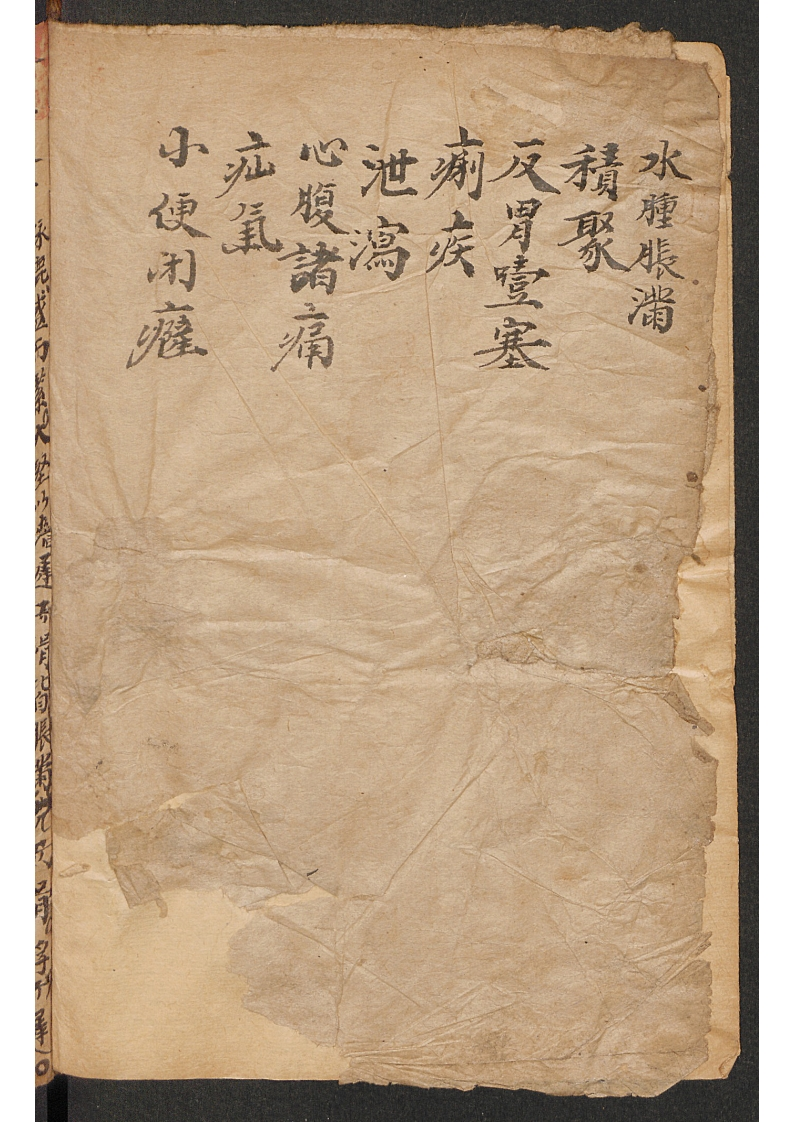 水腫脹滿
積聚
反胃噎塞
痢疾
泄瀉
心腹諸痛
疝氣
小便闭癃